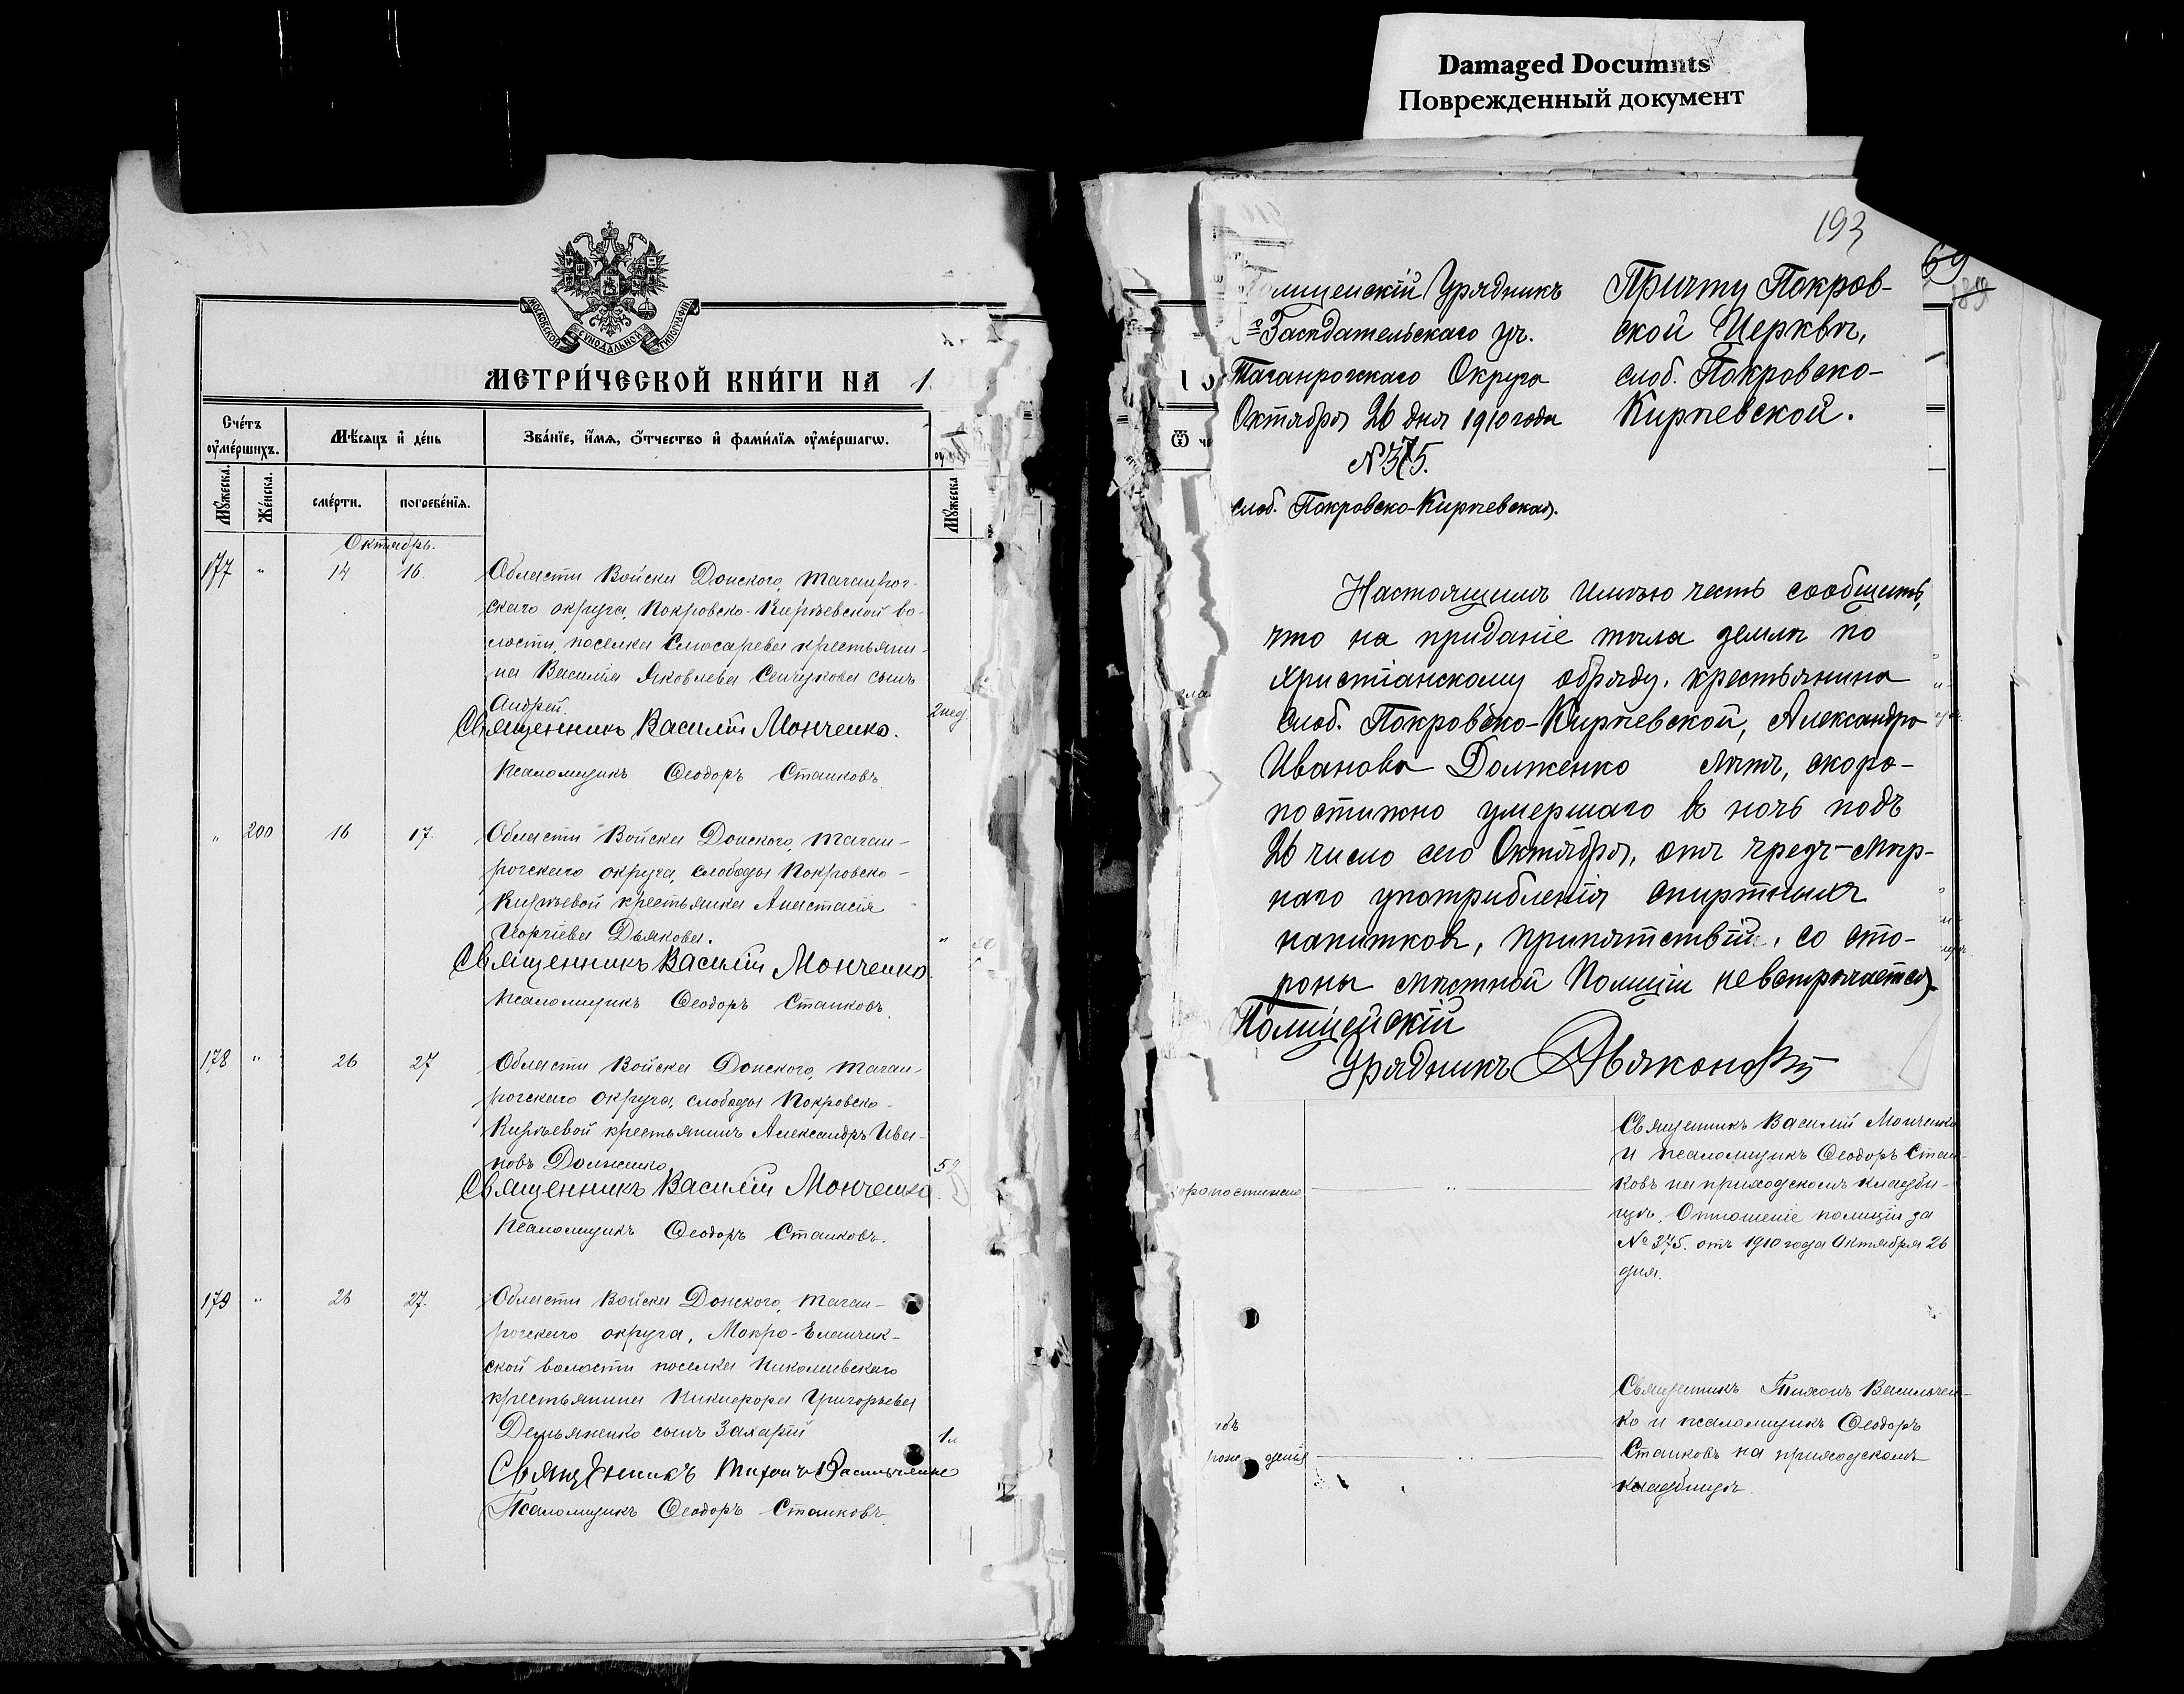 Damaged Documnts
Поврежденный документ
МОСКОВСКОЙ СУНОДАЛЬНОЙ ТИПОГРАФІИ
МЕТРИ́ЧЕСКОЙ КНИ́ГИ НА 1
Сче́тъ ᲂумéршихъ.
Мѣ́сяцъ и҆ де́нь
Зва́нїе, и҆́мѧ, ѻ҆́тчество и҆ фами́лїѧ ᲂу҆ме́ршагѡ.
Мꙋ́жеска.
Же́нска.
сме́рти.
погребе́нїѧ.
Мꙋ́жеска
Октябрь.
177 " 14 16. Области Войска Донского, Таганрог-
скаго округа, Покровско-Кирѣевской во-
лости, поселка Слюсарева крестьяни-
на Василія Яковлева Сенчукова сынъ
Андрей. 2 нед.
Священникъ Василій Монченко.
Псаломщикъ Ѳеодоръ Станковъ.
" 200 16 17. Области Войска Донского, Таган-
рогскаго округа, слободы Покровско-
Кирѣевой крестьянка Анастасія
Георгіева Дьякова. "
Священникъ Василій Монченко.
Псаломщикъ Ѳеодоръ Станковъ.
178 " 26 27 Области Войска Донского, Таган-
рогскаго округа, слободы Покровско-
Кирѣевой крестьянинъ Александръ Ива-
новъ Долженко
Священникъ Василій Монченко
Псаломщикъ Ѳеодоръ Станковъ.
179 " 26 27. Области Войска Донского, Таган-
рогскаго округа, Мокро-Еланчик-
ской волости поселка Николаевскаго
крестьянина Никифора Григорьева
Демьяненко сынъ Захарій 1
Священникъ Тихонъ Васильченко
Псаломщикъ Ѳеодоръ Станковъ.
193
69
Полицейскій Урядникъ
Засѣдательскаго уч.
Таганрогскаго Округа
Октября 26 дня 1910 года
№375.
слоб. Покровско-Кирѣевская.
Причту Покров-
ской Церкви,
слоб. Покровско-
Кирѣевской.
Настоящимъ имѣю честь сообщить,
что на приданіе тѣла землѣ по
христіанскому обряду, крестьянина
слоб. Покровско-Кирѣевской, Александра
Иванова Долженко лѣтъ, скоро-
постижно умершаго в ночь подъ
26 число сего Октября, отъ чрезъ-мѣр-
наго употрибленія спиртныхъ
напитковъ, припятствій, со сто-
роны мѣстной Полиціи невстрѣчается
Полицейскій
Урядникъ Дьяконовъ
скоропостижно
"
Священникъ Василій Монченко
и псаломщикъ Ѳеодоръ Стан-
ковъ на приходскомъ кладби-
щѣ. Отношеніе полиціи за
№ 375. отъ 1910 года Октября 26
дня.
Священникъ Тихонъ Васильчен-
ко и псаломщикъ Ѳеодоръ
Станковъ на приходскомъ
кладбищѣ.